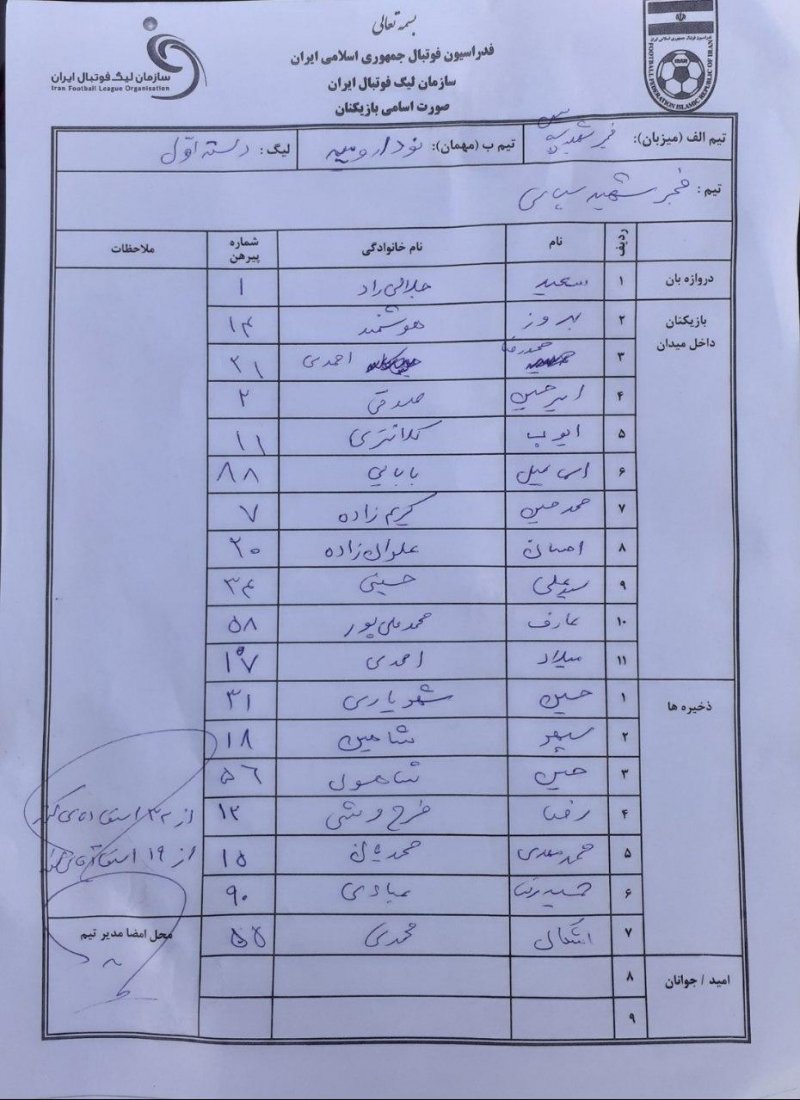 بسمه تعالی
فدراسیون فوتبال جمهوری اسلامی ایران
سازمان لیگ فوتبال ایران
صورت اسامی بازیکنان
سازمان لیگ فوتبال ایران
Iran Football League Organisation
IRAN
FOOTBALL FEDERATION ISLAMIC REPUBLIC OF IRAN
تیم الف (میزبان): فجر شهید سپاسی تیم ب (مهمان): نود ارومیه لیگ: دسته اول
تیم: فجر شهید سپاسی
ردیف نام نام خانوادگی شماره پیرهن ملاحظات
دروازه بان ۱ سعید جلالی راد ۱
بازیکنان داخل میدان ۲ بهروز هوشمند ۱۴
۳ حمیدرضا احمدی ۲۱
۴ امیرحسین صدقی ۲
۵ ایوب کلانتری ۱۱
۶ اسماعیل بابایی ۸۸
۷ محمدحسین کریم زاده ۷
۸ احسان علوان زاده ۲۰
۹ سیدعلی حسینی ۳۴
۱۰ عارف محمدعلی پور ۵۸
۱۱ میلاد احمدی
ذخیره ها ۱ حسین شهریاری ۳۱
۲ سپهر شاهین ۱۸
۳ حسین شاهولی ۵۶
۴ رضا ۱۲
۵ محمدمهدی ۱۵
۶ حمیدرضا عبادی ۹۰
۷ اشکان محمدی ۵۵
امید / جوانان ۸
۹
از ۳۲ استفاده می کند
از ۱۹ استفاده
محل امضا مدیر تیم